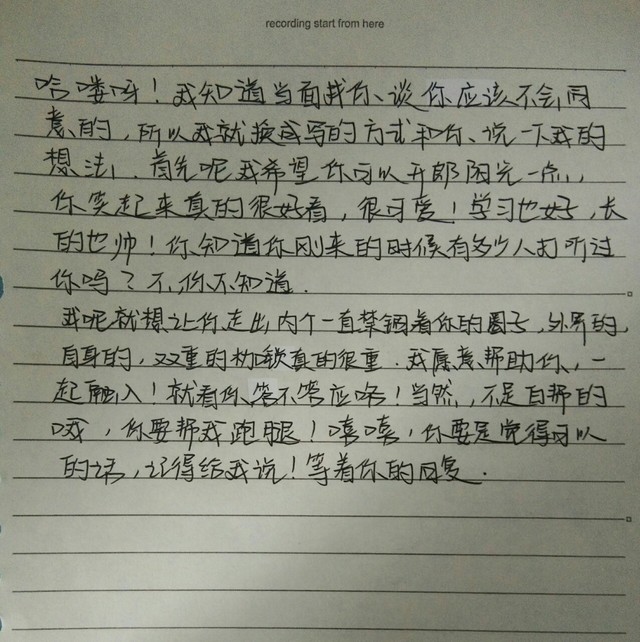 recording start from here
哈喽呀！我知道当面找你谈你应该不会同
意的，所以我就换成写的方式和你说一下我的
想法，首先呢我希望你可以开郎阳光一点，
你笑起来真的很好看，很可爱！学习也好，长
的也帅！你知道你刚来的时候有多少人打听过
你吗？不，你不知道．
我呢就想让你走出内个一直禁锢着你的圈子，外界的，
自身的，双重的枷锁真的很重．我愿意帮助你，一
起融入！就看你答不答应咯！当然，不是白帮的
哦，你要帮我跑腿！嘻嘻，你要是觉得可以
的话，记得给我说！等着你的回复．